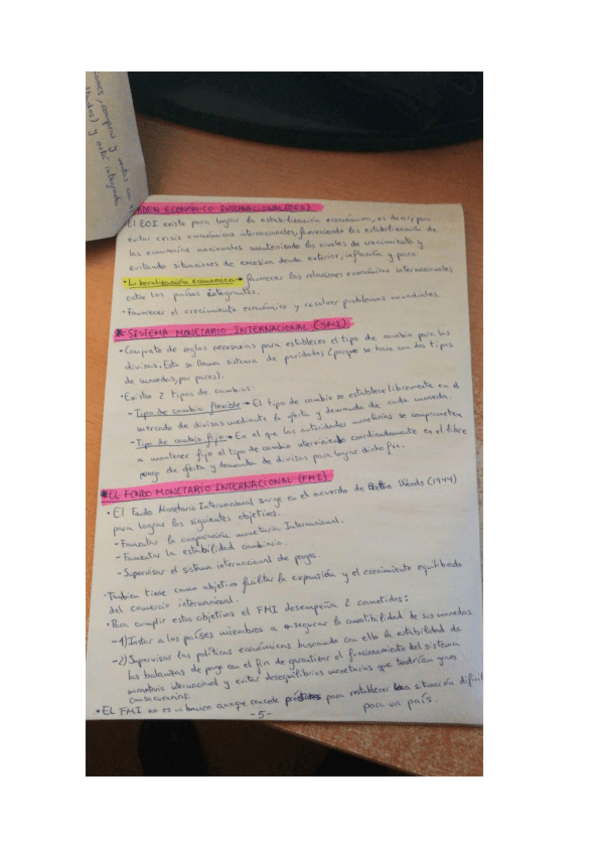 ciones, compras y ventas con e
y está integrado
ORDEN ECONÓMICO INTERNACIONAL (OEI)
El EOI existe para lograr la estabilización económica, es decir, para
evitar crisis económicas internacionales, favoreciendo la estabilización de
las economías nacionales manteniendo los niveles de crecimiento y
evitando situaciones de excesiva deuda exterior, inflación y paro.
• Liberalización económica → favorecer las relaciones económicas internacionales
entre los países integrantes.
• Favorecer el crecimiento económico y resolver problemas mundiales.
* SISTEMA MONETARIO INTERNACIONAL (SMI)
• Conjunto de reglas necesarias para establecer el tipo de cambio para las
divisas. Esto se llama sistema de paridades (porque se hace con dos tipos
de monedas, por pares).
• Existen 2 tipos de cambios:
- Tipo de cambio flexible → El tipo de cambio se establece libremente en el
mercado de divisas mediante la oferta y demanda de cada moneda.
- Tipo de cambio fijo → En el que las autoridades monetarias se comprometen
a mantener fijo el tipo de cambio interviniendo coordinadamente en el libre
juego de oferta y demanda de divisas para lograr dicho fin.
* EL FONDO MONETARIO INTERNACIONAL (FMI)
• El Fondo Monetario Internacional surge en el acuerdo de Woods (1944)
para lograr los siguientes objetivos.
- Fomentar la cooperación monetaria Internacional.
- Fomentar la estabilidad cambiaria.
- Supervisar el sistema internacional de pagos.
• También tiene como objetivo facilitar la expansión y el crecimiento equilibrado
del comercio internacional.
• Para cumplir estos objetivos el FMI desempeña 2 cometidos:
-1) Instar a los países miembros a asegurar la convertibilidad de sus monedas
-2) Supervisar las políticas económicas buscando con ello la estabilidad de
las balanzas de pago con el fin de garantizar el funcionamiento del sistema
monetario internacional y evitar desequilibrios monetarios que tendrían gran
• EL FMI no es un banco aunque concede préstamos para restablecer una situación difícil
para un país.
-5-